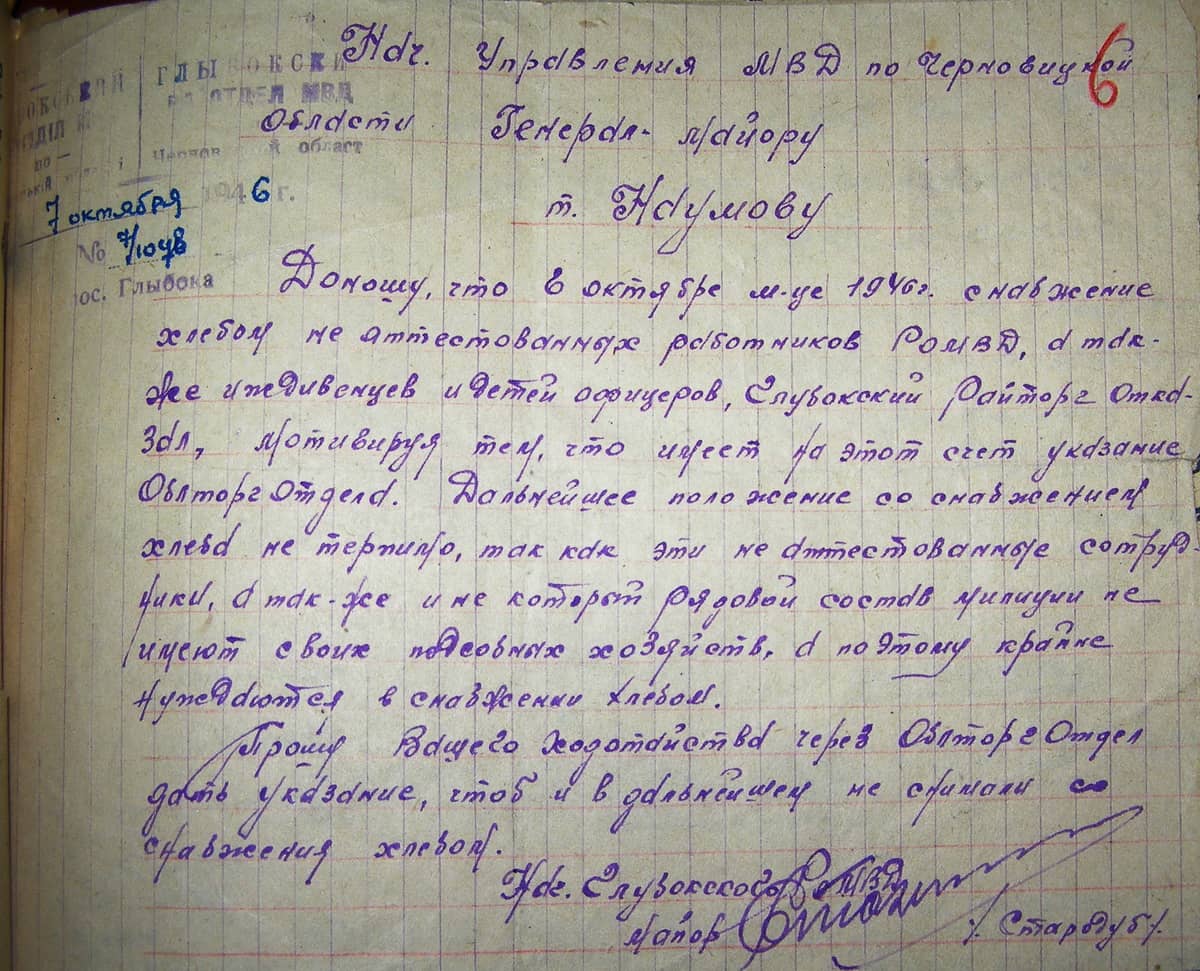 6
Нач. Управления МВД по Черновицкой
области Генерал-майору
т. Наумову
ГЛЫБОКСКИ
ОТДЕЛ МВД
област
7 октября 1946 г.
№
пос. Глыбока
Доношу, что в октябре м-це 1946г. снабжение
хлебом не аттестованных работников РОМВД, а так-
же иждивенцев и детей офицеров, Глубокский Райторг отка-
зал, мотивируя тем, что имеет на этот счет указание
ОблторгОтдела. Дальнейшее положение со снабжением
хлеба не терпимо, так как эти не аттестованные сотруд-
ники, а так-же и не который рядовой состав милиции не
имеют своих подсобных хозяйств, а поэтому крайне
нуждаются в снабжении хлебом.
Прошу Вашего ходотайства через ОблторгОтдел
дать указание, чтоб и в дальнейшем не снимали со
снабжения хлебом.
Нач. Глубокского РоМВД
майор /Стародуб/.